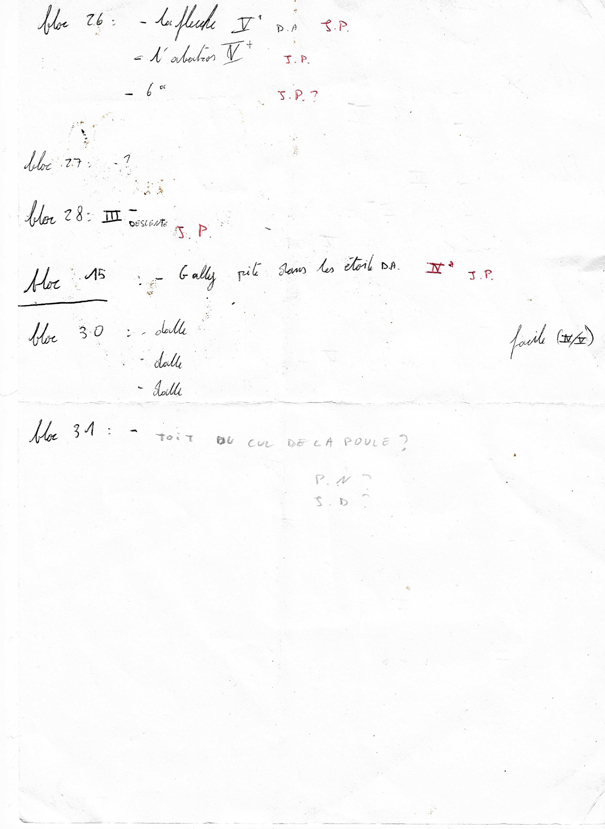 bloc 26 : - La fleche V+ D.A J.P.
- L'abattos IV+ J.P.
- 6a J.P. ?
bloc 27 : - ?
bloc 28 : III - DESCENTE J.P.
bloc 15 : - Gally pite dans les étoile D.A. IV+ J.P.
bloc 30 : - dalle facile (IV/V)
- dalle
- dalle
bloc 31 : - TOIT DU CUL DE LA POULE ?
P. N ?
J. D ?